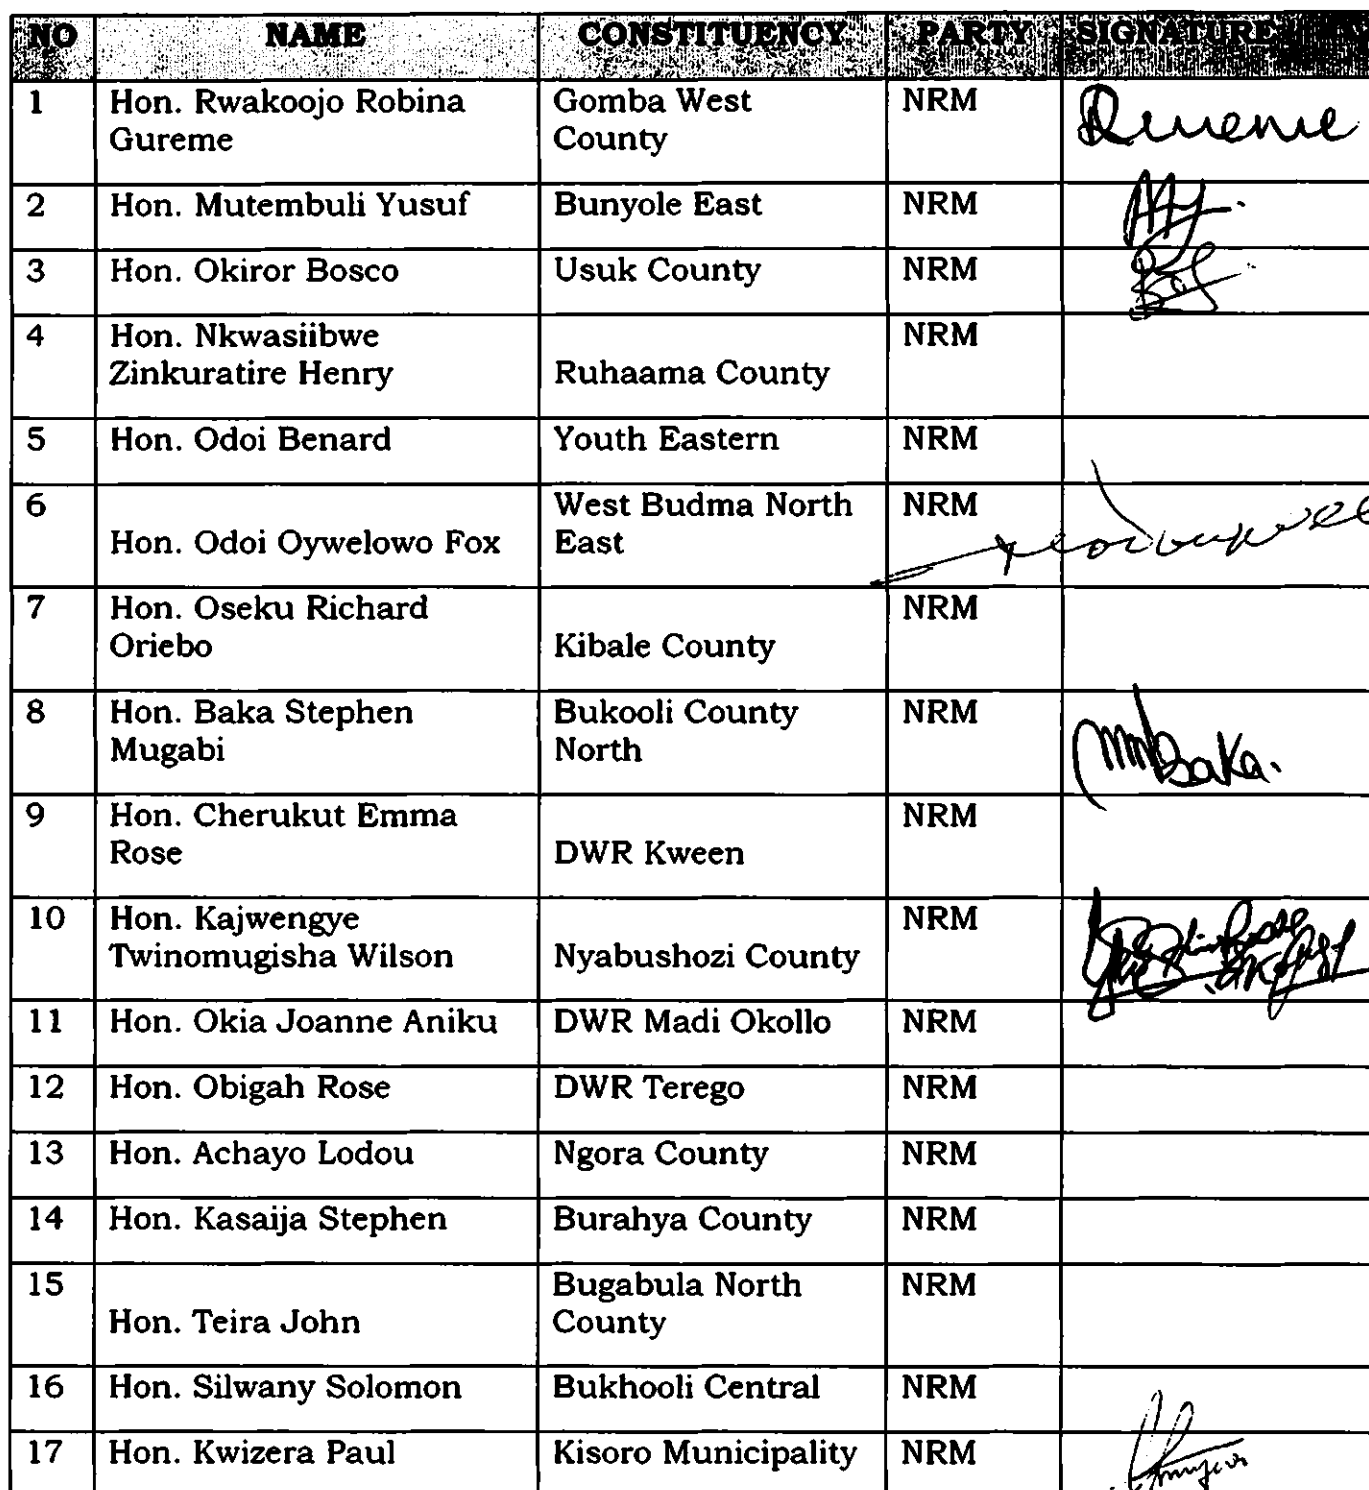 NO NAME CONSTITUENCY PARTY SIGNATURE
1 Hon. Rwakoojo Robina Gomba West NRM
Gureme County
2 Hon. Mutembuli Yusuf Bunyole East NRM
3 Hon. Okiror Bosco Usuk County NRM
4 Hon. Nkwasiibwe NRM
Zinkuratire Henry Ruhaama County
5 Hon. Odoi Benard Youth Eastern NRM
6 West Budma North NRM
Hon. Odoi Oywelowo Fox East
7 Hon. Oseku Richard NRM
Oriebo Kibale County
8 Hon. Baka Stephen Bukooli County NRM
Mugabi North Baka.
9 Hon. Cherukut Emma NRM
Rose DWR Kween
10 Hon. Kajwengye NRM
Twinomugisha Wilson Nyabushozi County
11 Hon. Okia Joanne Aniku DWR Madi Okollo NRM
12 Hon. Obigah Rose DWR Terego NRM
13 Hon. Achayo Lodou Ngora County NRM
14 Hon. Kasaija Stephen Burahya County NRM
15 Bugabula North NRM
Hon. Teira John County
16 Hon. Silwany Solomon Bukhooli Central NRM
17 Hon. Kwizera Paul Kisoro Municipality NRM